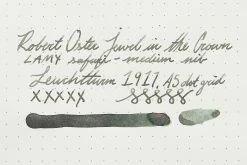 Robert Oster Jewel in the Crown
LAMY safari - medium nib
Leuchtturm 1917, A5 dot grid
xxxxx